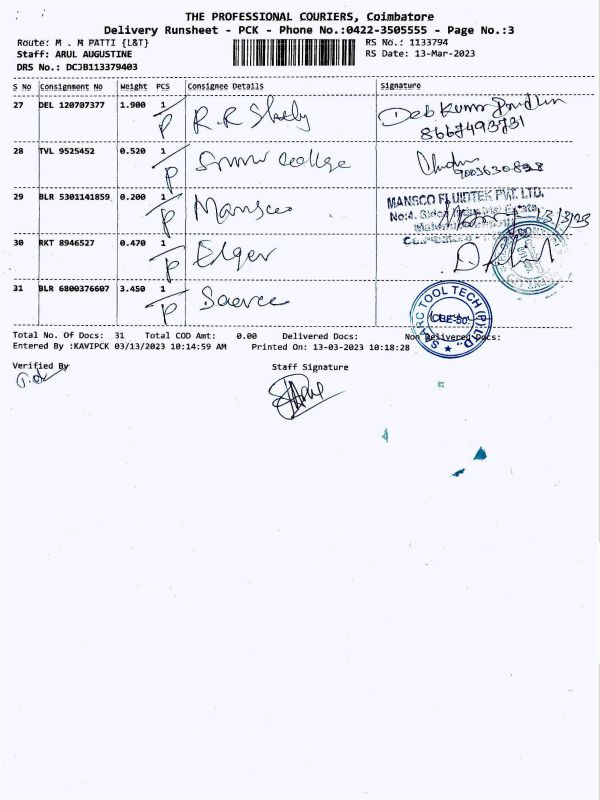 THE PROFESSIONAL COURIERS, Coimbatore
Delivery Runsheet - PCK - Phone No.:0422-3505555 - Page No.:3
Route: M . M PATTI {L&T} RS No.: 1133794
Staff: ARUL AUGUSTINE RS Date: 13-Mar-2023
DRS No.: DCJB113379403
S No Consignment No Weight PCS Consignee Details Signature
27 DEL 120707377 1.900 1 P R.R
28 TVL 9525452 0.520 1 P College
9003630898
29 BLR 5301141859 0.200 1 P Mansco MANSCO FLUIDTEK PVT. LTD.
13/3/23
30 RKT 8946527 0.470 1 P Elger
31 BLR 6800376607 3.450 1 P
SARC TOOL TECH (P) LTD. CBE-50
Total No. Of Docs: 31 Total COD Amt: 0.00 Delivered Docs: Non Delivered Docs:
Entered By :KAVIPCK 03/13/2023 10:14:59 AM Printed On: 13-03-2023 10:18:28
Verified By Staff Signature